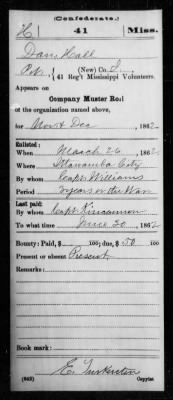 (Confederate.)
H 41 Miss.
Dan Hall
Pvt., (New) Co. I,
41 Reg't Mississippi Volunteers.
Appears on
Company Muster Roll
of the organization named above,
for Nov & Dec, 1862.
Enlisted:
When March 26, 1862
Where Itawamba Coty
By whom Capt. Williams
Period 3 years or the War
Last paid:
By whom Capt. Kincannon
To what time June 30, 1862
Bounty: Paid, $ 100; due, $ 50 100
Present or absent Present
Remarks:
Book mark:
E.
(642) Copyist.